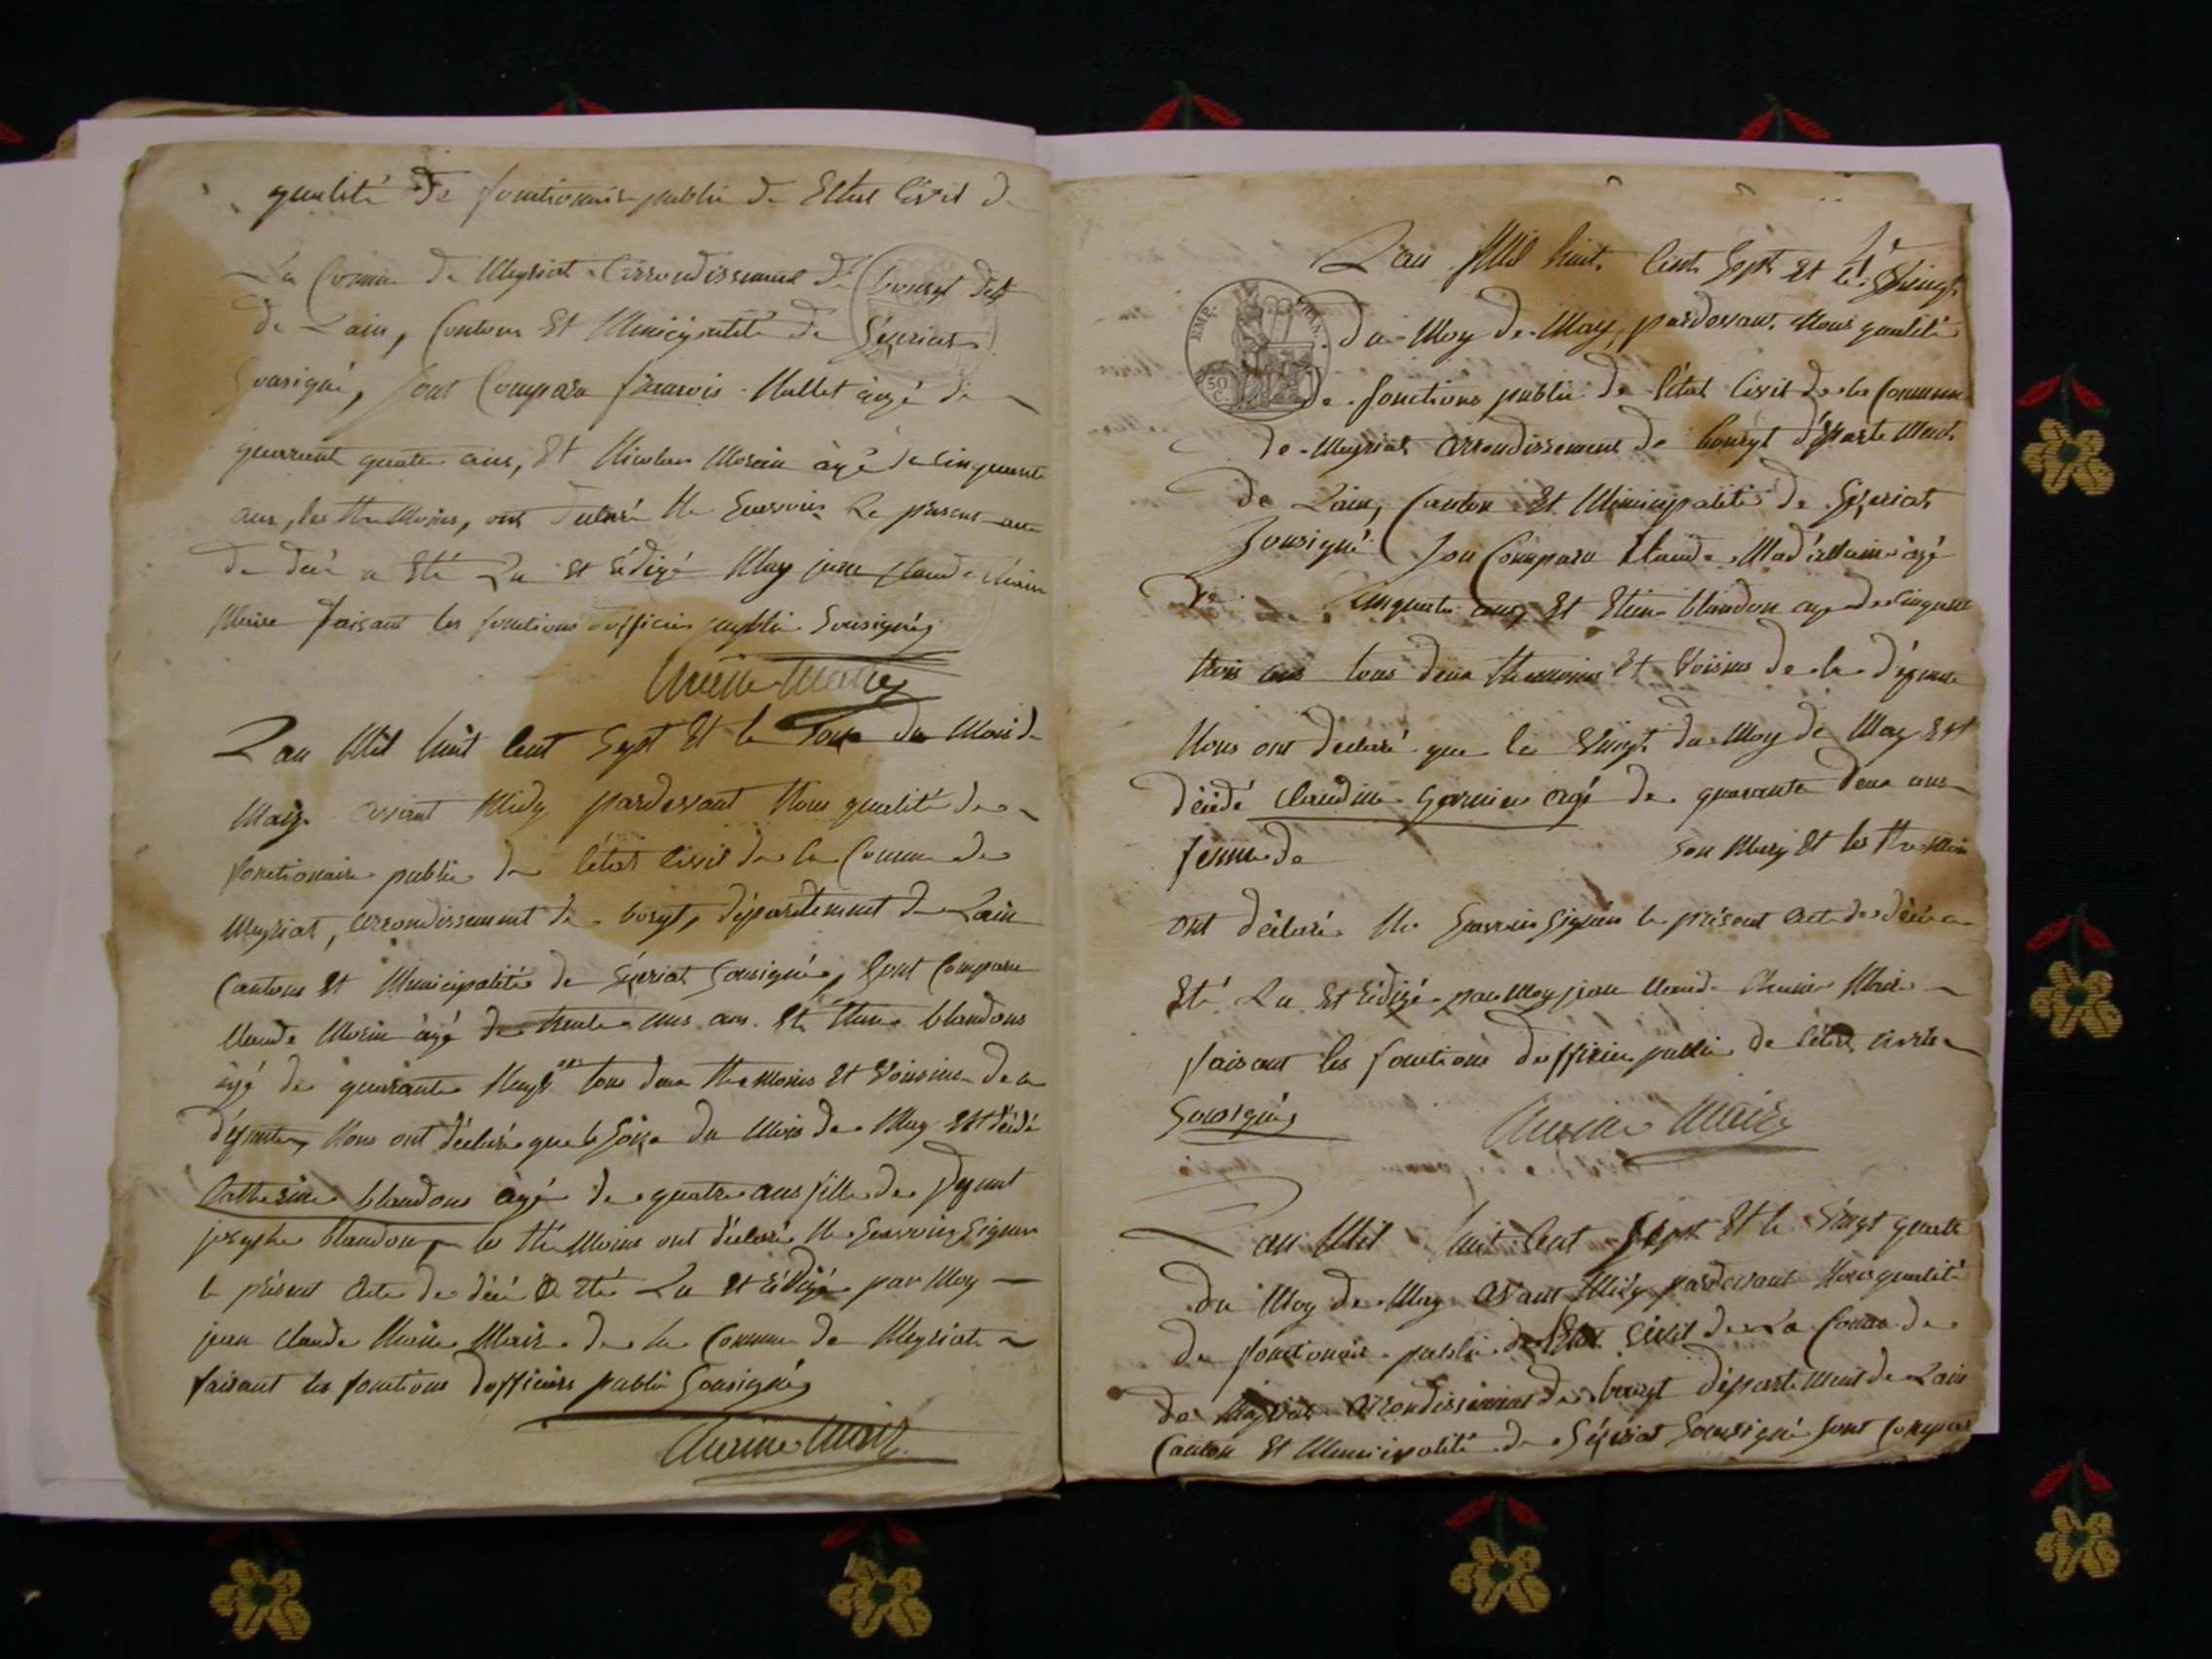 qualité de fonctionair publie de Etat Civil de
La Commune de Meyriat arrondissement de bourgt dept
de Lain, Contons Et Municipalité de Seyeriat
sousigné, sont Compara francois Mallet âgé de
quarante quatre ans, Et Nicolas Morin âgé de cinquante
ans, les themoins, ont déclaré Ne Scavoir Le présent acte
de décé a Eté Lu Et rédigé Moy jean Claude
Maire faisant les fonctions officier publie Sousignés
Maire
Lan Mil huit Cent Sept Et le du Mois de
May avant Midy pardevant Nous qualité de
fonctionaire publie de létat Civil de la Commune de
Meyriat, arrondissement de bourgt, département de Lain
Cantons Et Municipalité de Seyeriat Sousigné, Sont Compara
Claude Morin âgé de trente ans Et blandons
âgé de quarante ans tous deux themoins Et Voisins de la
défunte, Nous ont déclaré que le du Mois de May Est décédé
Catherine blandons âgé de quatre ans fille de défunt
josephe blandon, les themoins ont déclaré Ne Scavoir Signer
le présent Acte de décé a Eté Lu Et rédigé par Moy
jean Claude Maire de la Commune de Meyriat
faisant les fonctions dofficiers publie Sousignés
Maire
Lan Mil huit Cent Sept Et le Vingt
du Moy de May, pardevant Nous qualité
EMP. FRAN.
50 C.
de fonctions publie de létat Civil de la Commune
de Meyriat arrondissement de bourgt département
de Lain, Canton Et Municipalité de Seyeriat
Sousigné Son Compara Claude âgé
de Cinquante ans Et Etiene blandon age de Cinquante
trois ans tous deux themoins Et Voisins de la défunte
Nous ont déclaré que le Vingt du Moy de May Est
décédé Claudine agé de quarante deux ans
femme de son Mary Et les themoins
ont déclaré Ne Scavoir Signer le présent acte de décé a
Eté Lu Et rédigé par Moy jean Claude Maire
faisant les fonctions dofficier publie de létat
Sousignés Maire
Lan Mil huit Cent Sept Et le Vingt quatre
du Moy de May avant Midy pardevant Nous qualité
de fonctionair publie de létat Civil de La Comune
de Meyriat arrondissement de bourgt département de Lain
Canton Et Municipalité de Seyeriat Sousigné Sont Compara